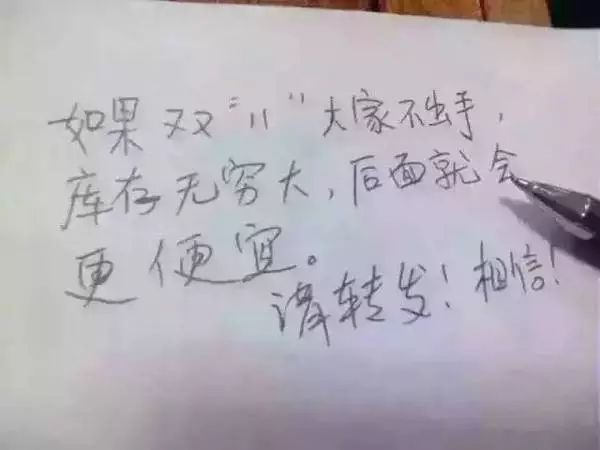 如果双“11”大家不出手，
库存无穷大，后面就会
更便宜。
请转发！相信！